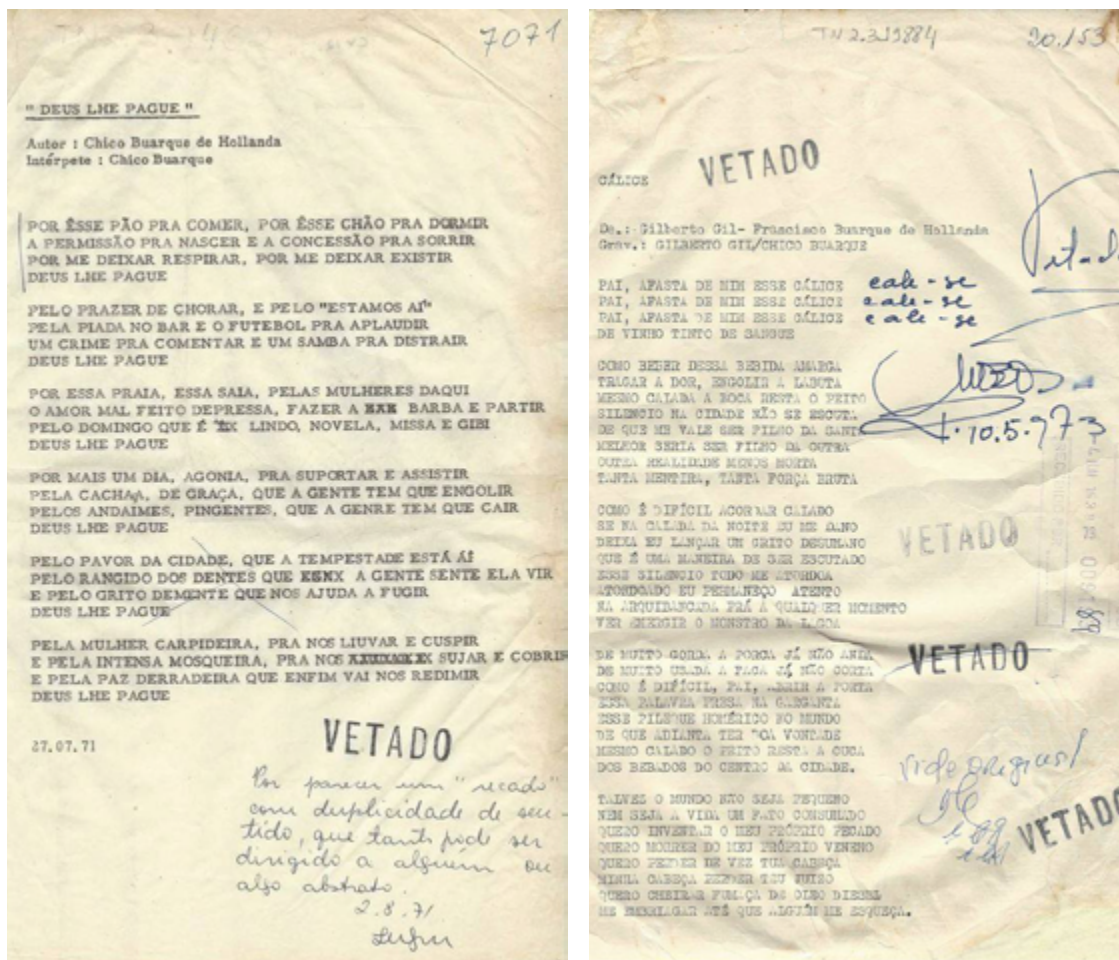 7071
" DEUS LHE PAGUE "
Autor : Chico Buarque de Hollanda
Intérpete : Chico Buarque
POR ÊSSE PÃO PRA COMER, POR ÊSSE CHÃO PRA DORMIR
A PERMISSÃO PRA NASCER E A CONCESSÃO PRA SORRIR
POR ME DEIXAR RESPIRAR, POR ME DEIXAR EXISTIR
DEUS LHE PAGUE
PELO PRAZER DE CHORAR, E PELO "ESTAMOS AÍ"
PELA PIADA NO BAR E O FUTEBOL PRA APLAUDIR
UM CRIME PRA COMENTAR E UM SAMBA PRA DISTRAIR
DEUS LHE PAGUE
POR ESSA PRAIA, ESSA SAIA, PELAS MULHERES DAQUI
O AMOR MAL FEITO DEPRESSA, FAZER A BARBA E PARTIR
PELO DOMINGO QUE É LINDO, NOVELA, MISSA E GIBI
DEUS LHE PAGUE
POR MAIS UM DIA, AGONIA, PRA SUPORTAR E ASSISTIR
PELA CACHAÇA, DE GRAÇA, QUE A GENTE TEM QUE ENGOLIR
PELOS ANDAIMES, PINGENTES, QUE A GENRE TEM QUE CAIR
DEUS LHE PAGUE
PELO PAVOR DA CIDADE, QUE A TEMPESTADE ESTÁ AÍ
PELO RANGIDO DOS DENTES QUE A GENTE SENTE ELA VIR
E PELO GRITO DEMENTE QUE NOS AJUDA A FUGIR
DEUS LHE PAGUE
PELA MULHER CARPIDEIRA, PRA NOS LIUVAR E CUSPIR
E PELA INTENSA MOSQUEIRA, PRA NOS SUJAR E COBRIR
E PELA PAZ DERRADEIRA QUE ENFIM VAI NOS REDIMIR
DEUS LHE PAGUE
27.07.71
VETADO
Por parecer um "recado"
com duplicidade de sen-
tido, que tanto pode ser
dirigido a alguém ou
algo abstrato.
2.8.71
TN 2.3.19884
20.153
VETADO
CÁLICE
De.: Gilberto Gil- Francisco Buarque de Hollanda
Grav.: GILBERTO GIL/CHICO BUARQUE
Vetado
PAI, AFASTA DE MIM ESSE CÁLICE cale-se
PAI, AFASTA DE MIM ESSE CÁLICE cale-se
PAI, AFASTA DE MIM ESSE CÁLICE cale-se
DE VINHO TINTO DE SANGUE
COMO BEBER DESSA BEBIDA AMARGA
TRAGAR A DOR, ENGOLIR A LABUTA
MESMO CALADA A BOCA RESTA O PEITO
SILENCIO NA CIDADE NÃO SE ESCUTA
DE QUE ME VALE SER FILHO DA SANTA
10.5.973
MELHOR SERIA SER FILHO DA OUTRA
OUTRA REALIDADE MENOS MORTA
TANTA MENTIRA, TANTA FORÇA BRUTA
COMO É DIFÍCIL ACORDAR CALADO
SE NA CALADA DA NOITE EU ME DANO
DEIXA EU LANÇAR UM GRITO DESUMANO
VETADO
QUE É UMA MANEIRA DE SER ESCUTADO
ESSE SILENCIO TODO ME ATORDOA
ATORDOADO EU PERMANEÇO ATENTO
NA ARQUIBANCADA PRÁ A QUALQUER MOMENTO
VER EMERGIR O MONSTRO DA LAGOA
DE MUITO GORDA A PORCA JÁ NÃO ANDA
VETADO
DE MUITO USADA A FACA JÁ NÃO CORTA
COMO É DIFÍCIL, PAI, ABRIR A PORTA
ESSA PALAVRA PRESA NA GARGANTA
ESSE PILEQUE HOMÉRICO NO MUNDO
DE QUE ADIANTA TER BOA VONTADE
MESMO CALADO O PEITO RESTA A CUCA
DOS BEBADOS DO CENTRO DA CIDADE.
Vide original
TALVES O MUNDO NÃO SEJA PEQUENO
NEM SEJA A VIDA UM FATO CONSUMADO
VETADO
QUERO INVENTAR O MEU PRÓPRIO PECADO
QUERO MORRER DO MEU PRÓPRIO VENENO
QUERO PERDER DE VEZ TUA CABEÇA
MINHA CABEÇA PERDER TEU JUISO
QUERO CHEIRAR FUMAÇA DE OLEO DIESEL
ME EMBRIAGAR ATÉ QUE ALGUÉM ME ESQUEÇA.